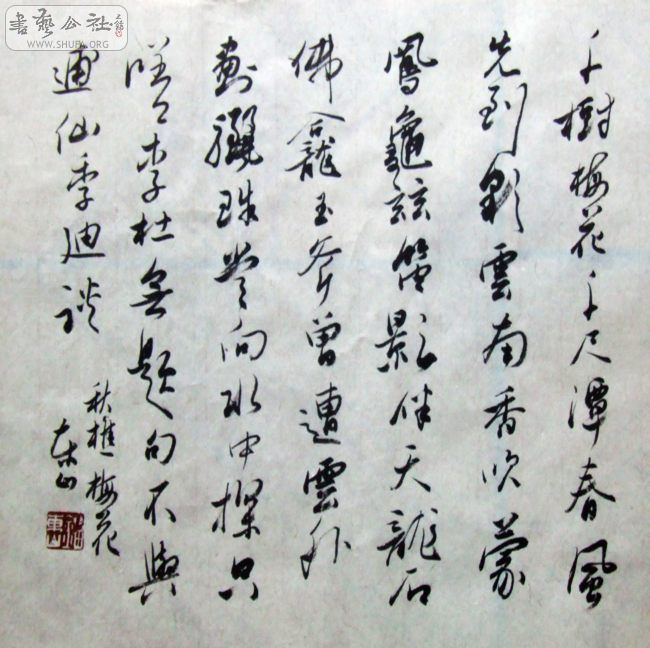 書藝公社
WWW.SHUFA.ORG
千樹梅花千尺潭春風
先到彩雲南香吹蒙
鳳龜茲笛影伴天龍石
佛龕玉斧曾遭雲外
劃驪珠常向水中探只
嗟李杜無題句不與
逋仙季迪談
秋樵梅花
東山